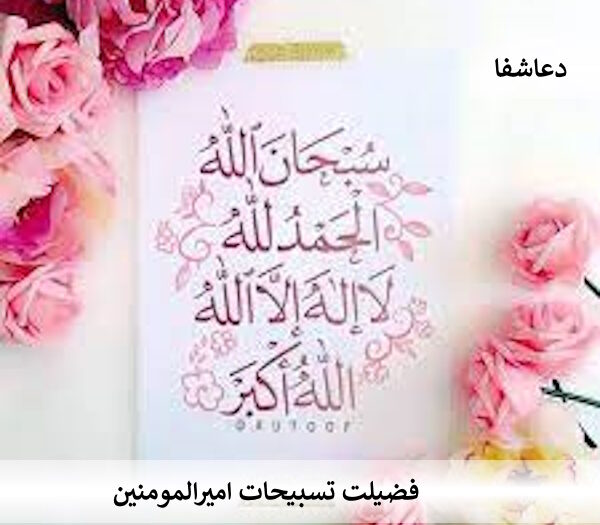 دعاشفا
سُبْحَانَ ٱللَّٰهُ
الْحَمْدُ لِلَّٰهُ
لَا إِلٰهَ إِلَّا ٱللَّٰهُ
اللَّٰهُ أَكْبَرَ
فضیلت تسبیحات امیرالمومنین